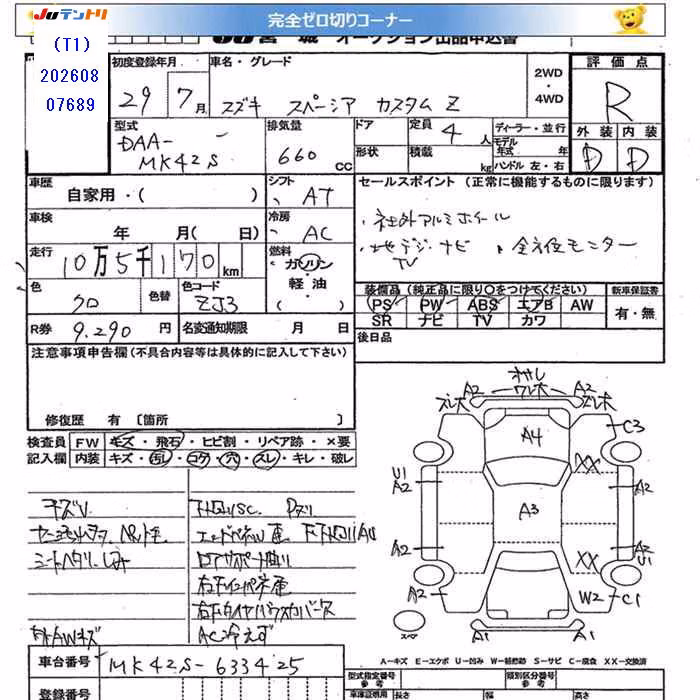 JUテントリ
完全ゼロ切りコーナー
(T1)
202608
07689
JU宮城 オークション出品申込書
初度登録年月
29年 7月
車名・グレード
スズキ スペーシア カスタム Z
2WD
・
4WD
評価点
R
外装 内装
D D
型式
DAA-
MK42S
排気量
660 CC
ドア
定員 4 人
形状
積載 kg
ディーラー・並行
モデル年式 年
ハンドル 左・右
車歴
自家用・( )
シフト
AT
セールスポイント (正常に機能するものに限ります)
・社外アルミホイール
・地デジ・ナビ 、全方位モニター
TV
車検
年 月( 日)
冷房
AC
走行
10万5千170km
燃料
ガソリン
・
軽油
( )
色
クロ
色替
色コード
ZJ3
装備品 (純正品に限り〇をつけてください)
PS PW ABS エアB AW
SR ナビ TV カワ
新車保証書
有・無
R券 9.290 円
名変通知期限 月 日
後日品
注意事項申告欄(不具合内容等は具体的に記入して下さい)
修復歴 有 〔箇所 〕
検査員
記入欄
FW キズ・飛石・ヒビ割・リペア跡・×要
内装 キズ・汚レ・コゲ・穴・スレ・キレ・破レ
キズV
シートヘタリ.シミ
外AWキズ
エンドパネル
ロアサポート曲り
右リヤタイヤハウスカバー欠
AC冷えず
車台番号 MK42S-633425
登録番号
A2 ワレ木 A2
ズレ木 ズレ木
A4
C3
U1
A2
XX
A2
A3
A2
XX
A2
U1
A2
W2
C1
A1 A1
スペア
A−キズ E−エクボ U−凹み W−補修跡 S−サビ C−腐食 XX−交換済
型式指定番号
参考
類別区分番号
参考
車庫証明用
長さ 幅 高さ